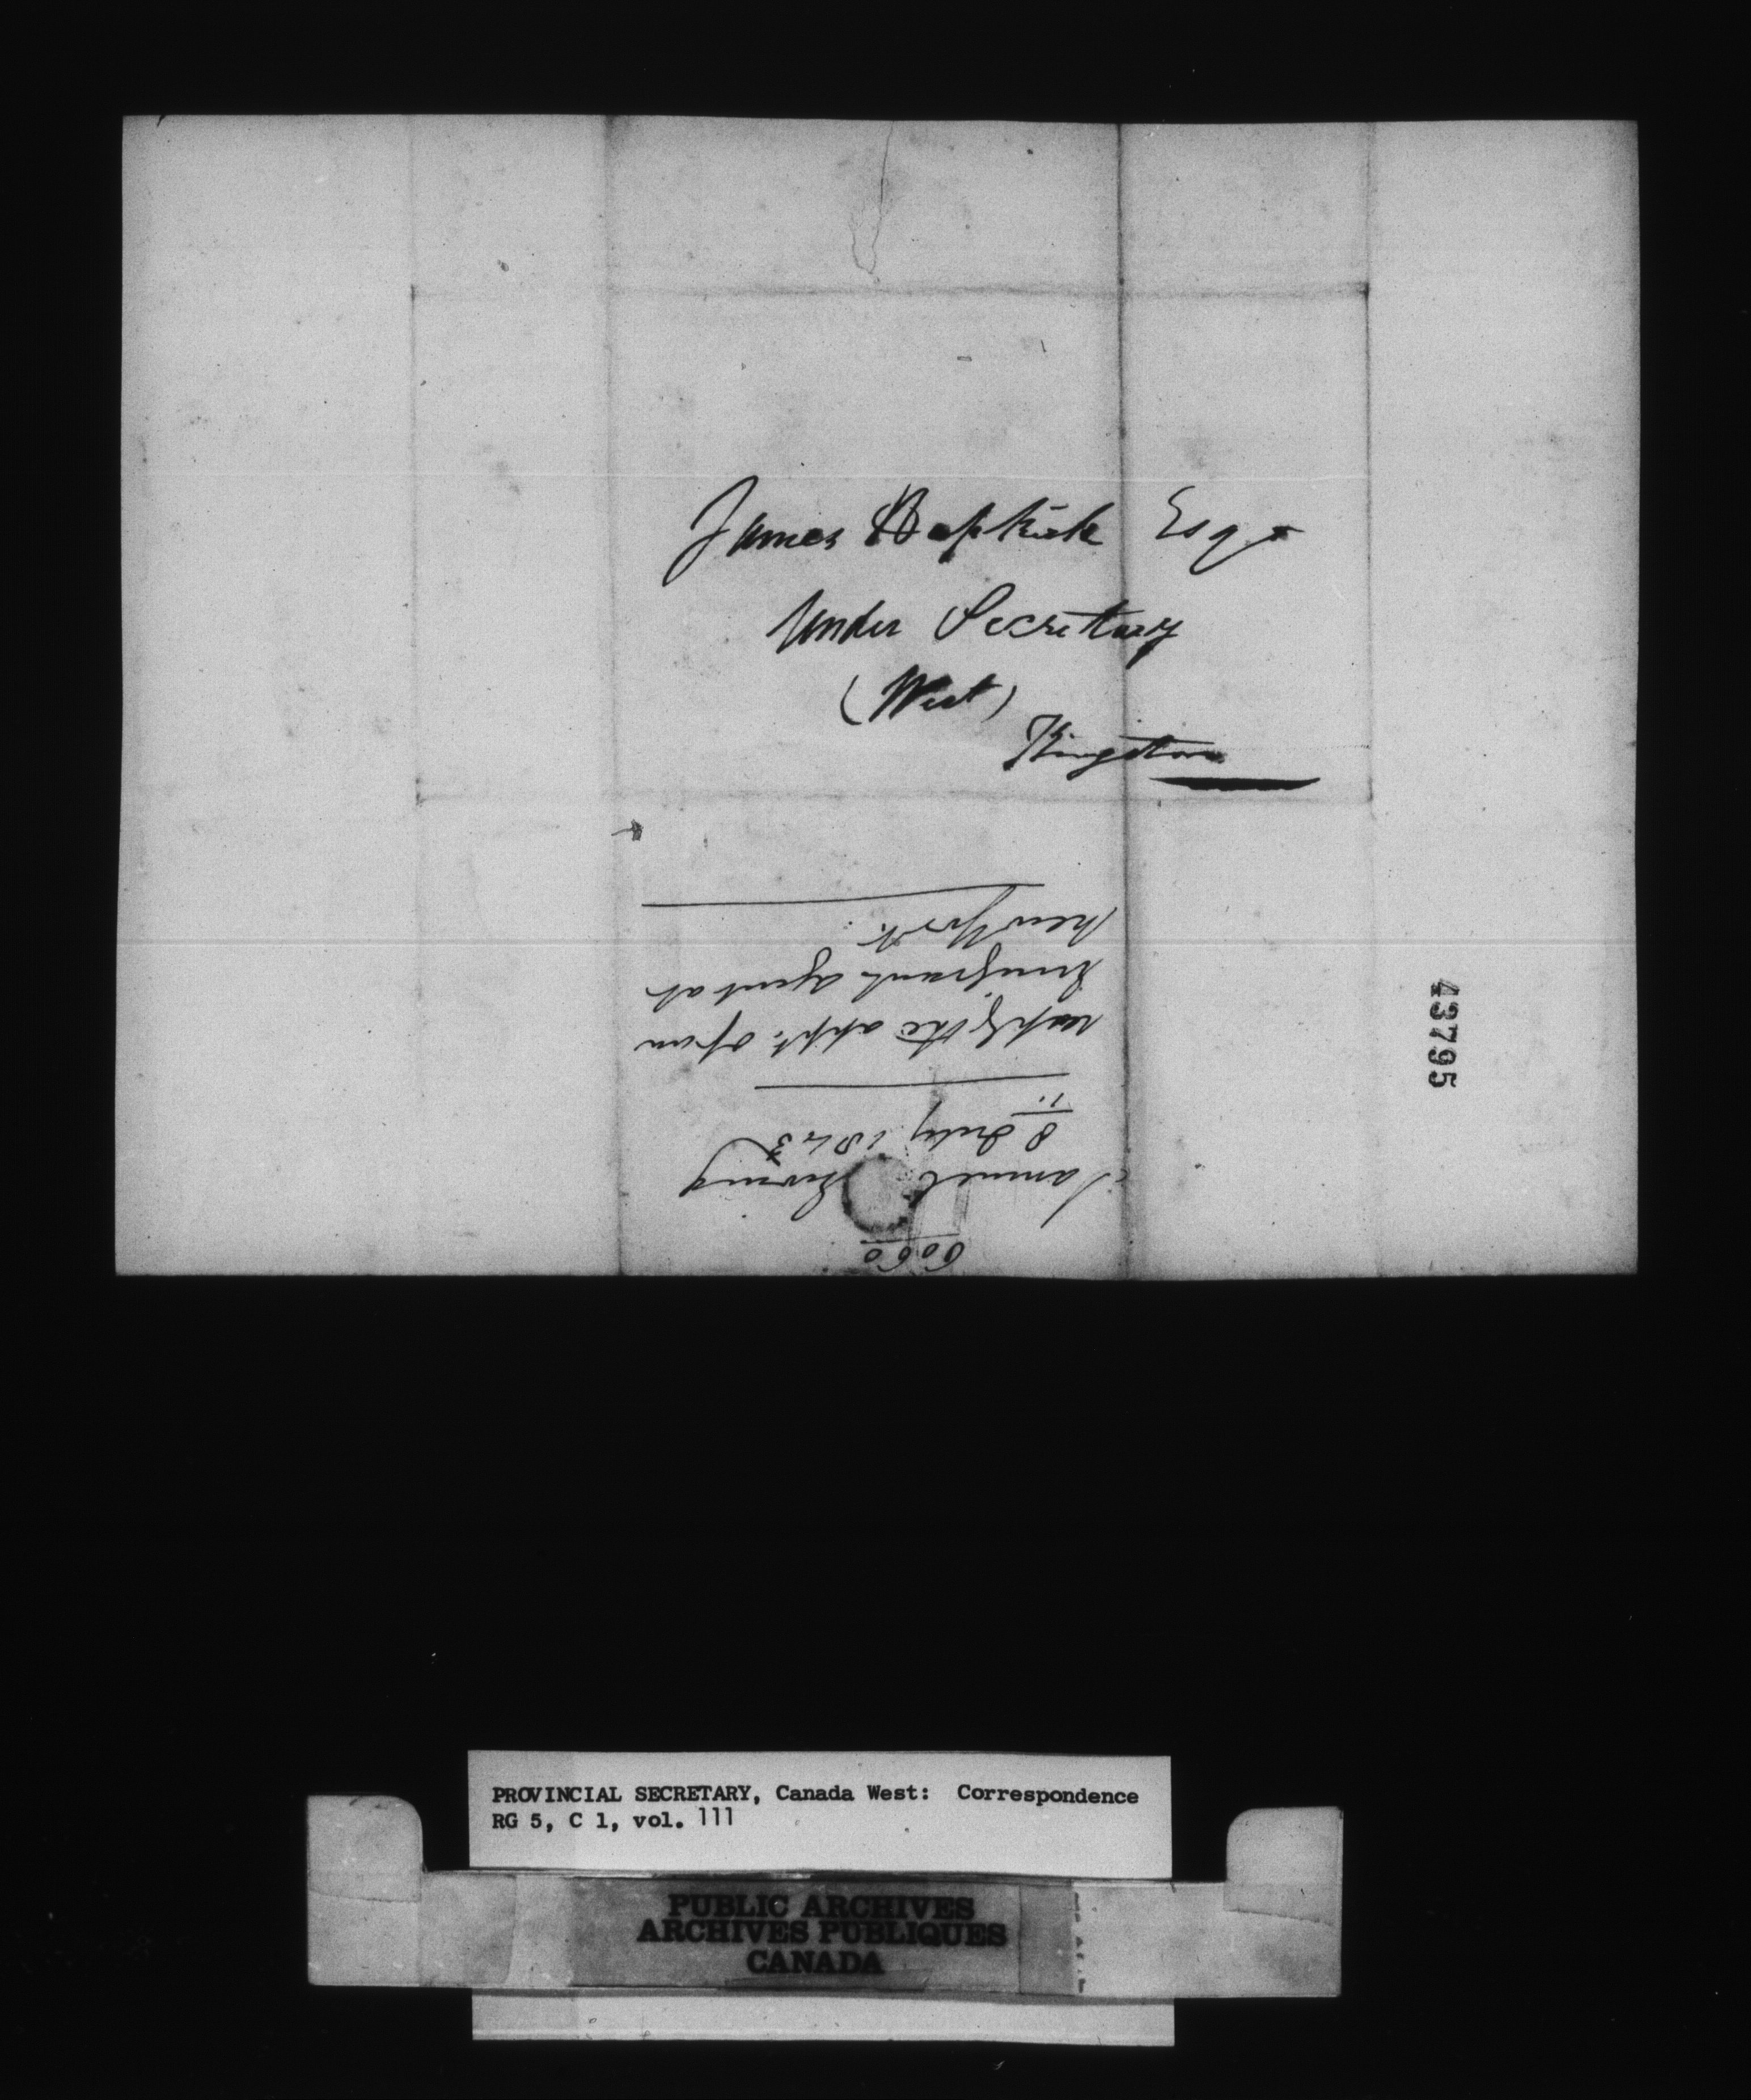 James Hopkirk Esqr
Under Secretary
(West)
Kingston
6060
Samuel
8 July 1843
11
respg the appt. of an
Emigrant Agent at
New York.
43795
PROVINCIAL SECRETARY, Canada West: Correspondence
RG 5, C 1, vol. 111
PUBLIC ARCHIVES
ARCHIVES PUBLIQUES
CANADA